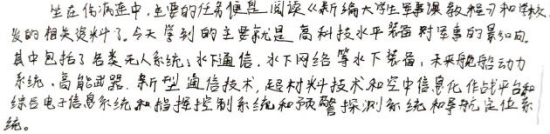 坐在伤病连中，主要的任务便是阅读《新编大学生军事课教程》和学校
发的相关资料了。今天学到的主要就是高科技水平装备对军事的影响。
其中包括了各类无人系统：水下通信，水下网络等水下装备，未来舰船动力
系统，高能武器，新型通信技术，超材料技术和空中信息化作战平台和
综合电子信息系统和指挥控制系统和预警探测系统和导航定位系
统。